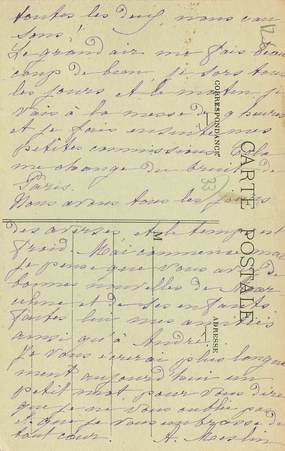 toutes les deux nous cau
sons!
Le grand air me fais beau
coup de bien, je sors tous
les jours et le matin je
vais à la messe de 9 heures
et je fais ensuite mes
petites commissions. Cela
me change du bruit de
Paris.
Nous avons tous les jours
des averses, et le temps est
froid. Mai commence mal
je pense que vous avez de
bonnes nouvelles de
et de ses enfants
faites lui mes amitiés
ainsi qu'à André.
je vous écrirai plus longue
ment aujourd'hui un
petit mot pour vous dire
que je ne vous oublie pas
et que je vous embrasse de
tout cœur. A. Meslin
CARTE POSTALE
CORRESPONDANCE
ADRESSE
M
33